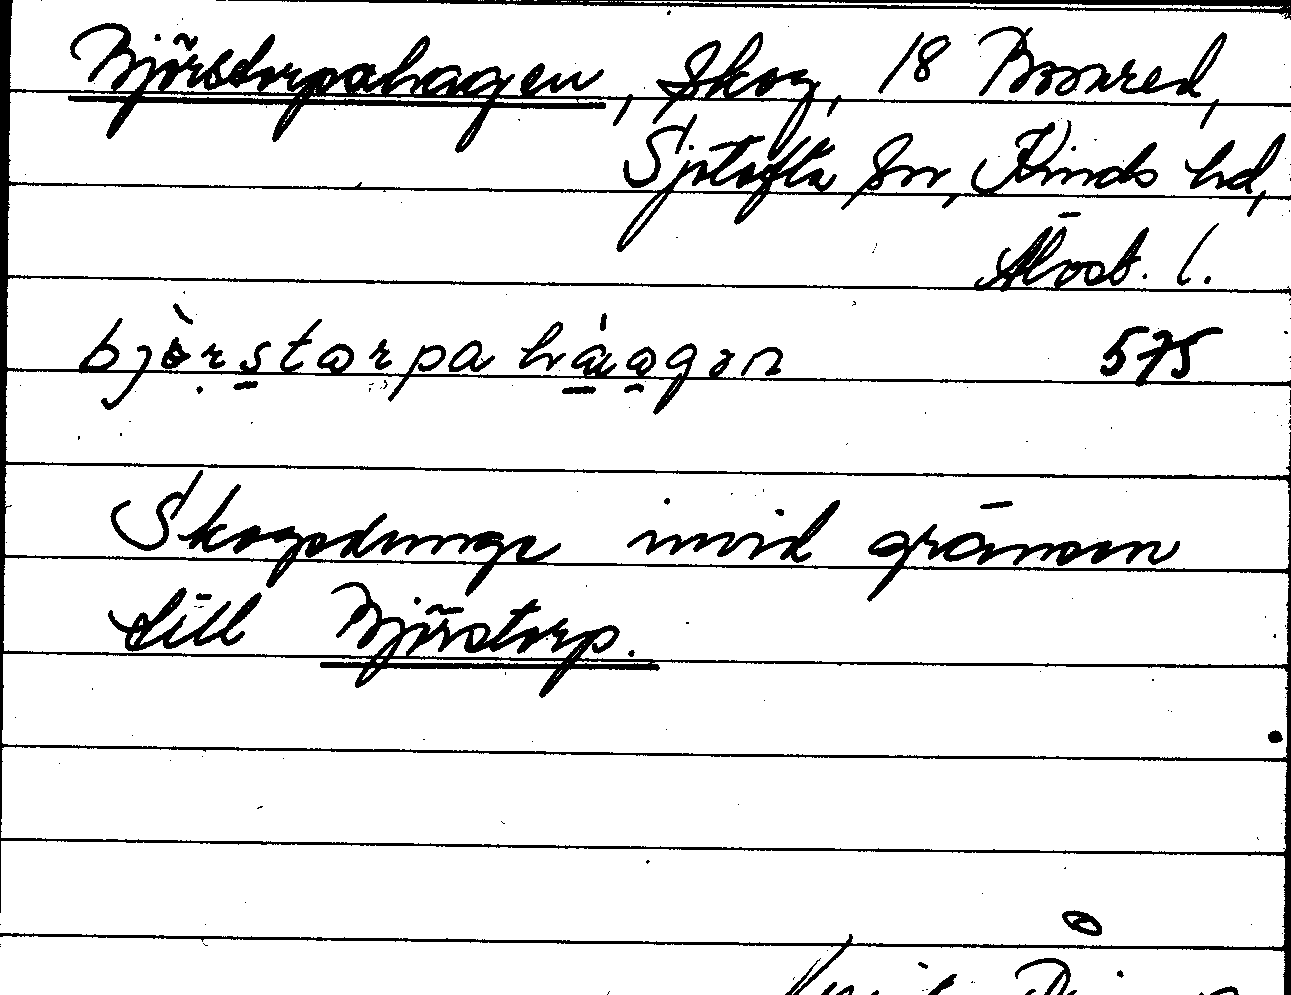 Björstorpahagen, skog, 18 Boared,
Sjötofta sn, Kinds hd,
Älvsb. l.
bjòrstorpa háagan 575
Skogsdunge invid gränsen
till Björstorp.